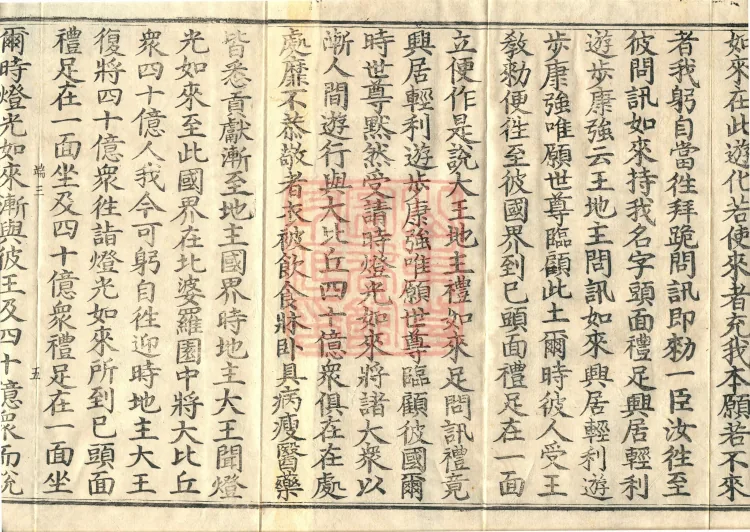 如來在此遊化若使來者充我本願若不來
者我躬自當往拜跪問訊即勑一臣汝往至
彼問訊如來持我名字頭面禮足興居輕利
遊步康強云王地主問訊如來興居輕利遊
步康強唯願世尊臨顧此土爾時彼人受王
教勑便往至彼國界到已頭面禮足在一面
立便作是說大王地主禮如來足問訊禮竟
興居輕利遊步康強唯願世尊臨顧彼國爾
時世尊默然受請時燈光如來將諸大衆以
漸人間遊行與大比丘四十億衆俱在在處
處靡不恭敬者衣被飲食牀卧具病瘦醫藥
皆悉貢獻漸至地主國界時地主大王聞燈
光如來至此國界在比婆羅園中將大比丘
衆四十億人我今可躬自往迎時地主大王
復將四十億衆往詣燈光如來所到已頭面
禮足在一面坐及四十億衆禮足在一面坐
端三 五
爾時燈光如來漸與彼王及四十億衆而說